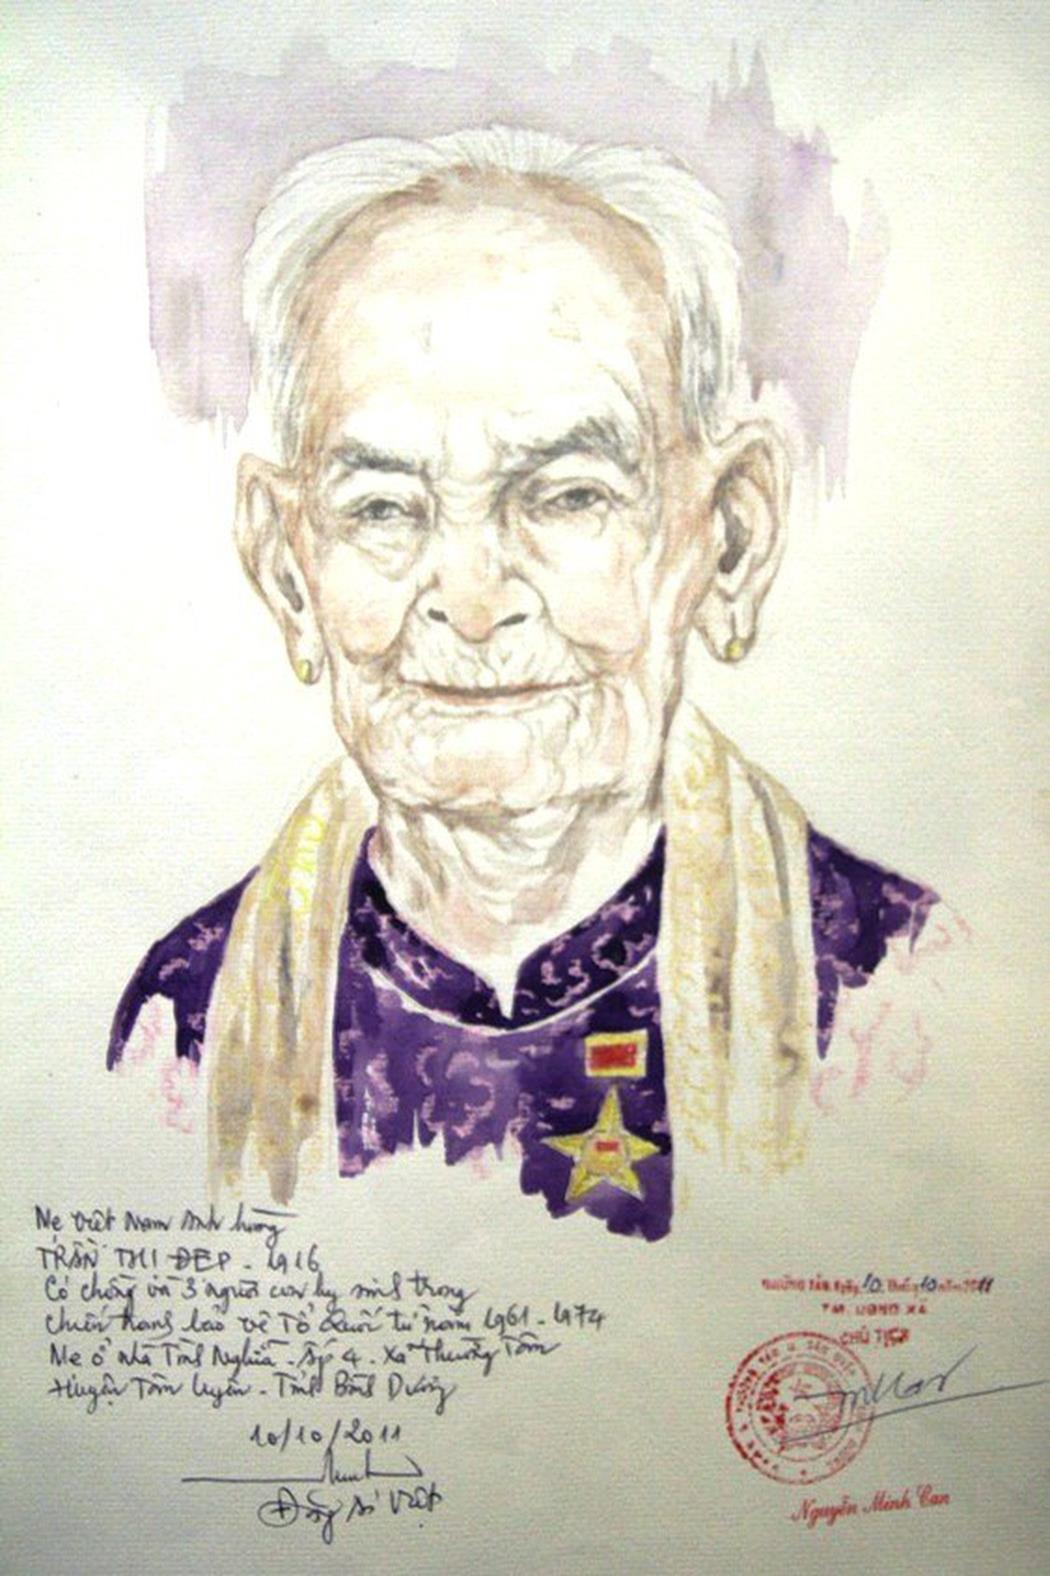 Mẹ Việt Nam Anh hùng
TRẦN THỊ ĐẸP - 1916
Có chồng và 3 người con hy sinh trong
chiến tranh bảo vệ Tổ Quốc từ năm 1961 - 1974
Mẹ ở nhà Tình Nghĩa - ấp 4 - Xã Thường Tân
Huyện Tân Uyên - Tỉnh Bình Dương
10/10/2011
Đặng Ái Việt
THƯỜNG TÂN Ngày 10 tháng 10 năm 2011
TM. UBND XÃ
CHỦ TỊCH
Nguyễn Minh Can